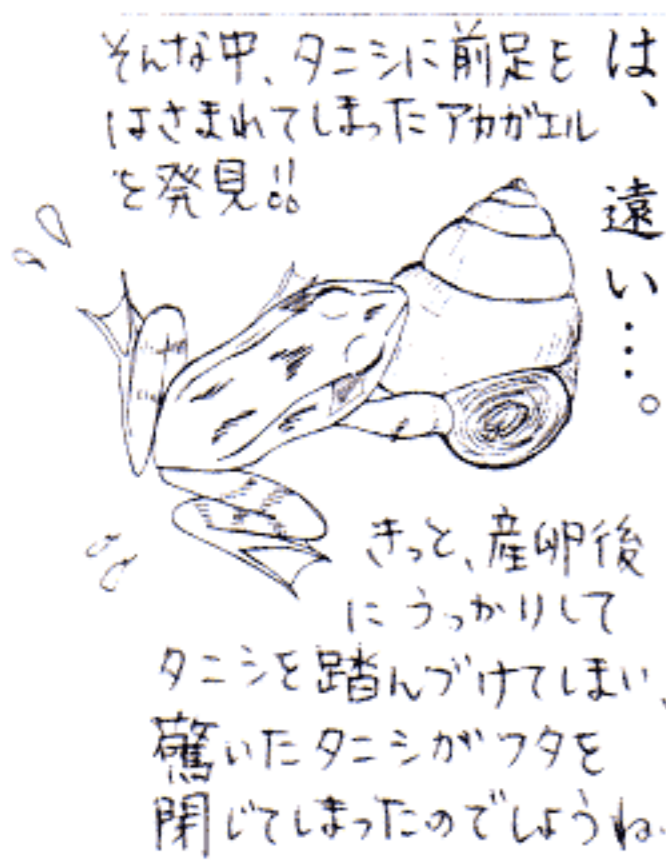 は、遠い…。
そんな中、タニシに前足を
はさまれてしまったアカガエル
を発見!!
きっと、産卵後
にうっかりして
タニシを踏んづけてしまい、
驚いたタニシがフタを
閉じてしまったのでしょうね。